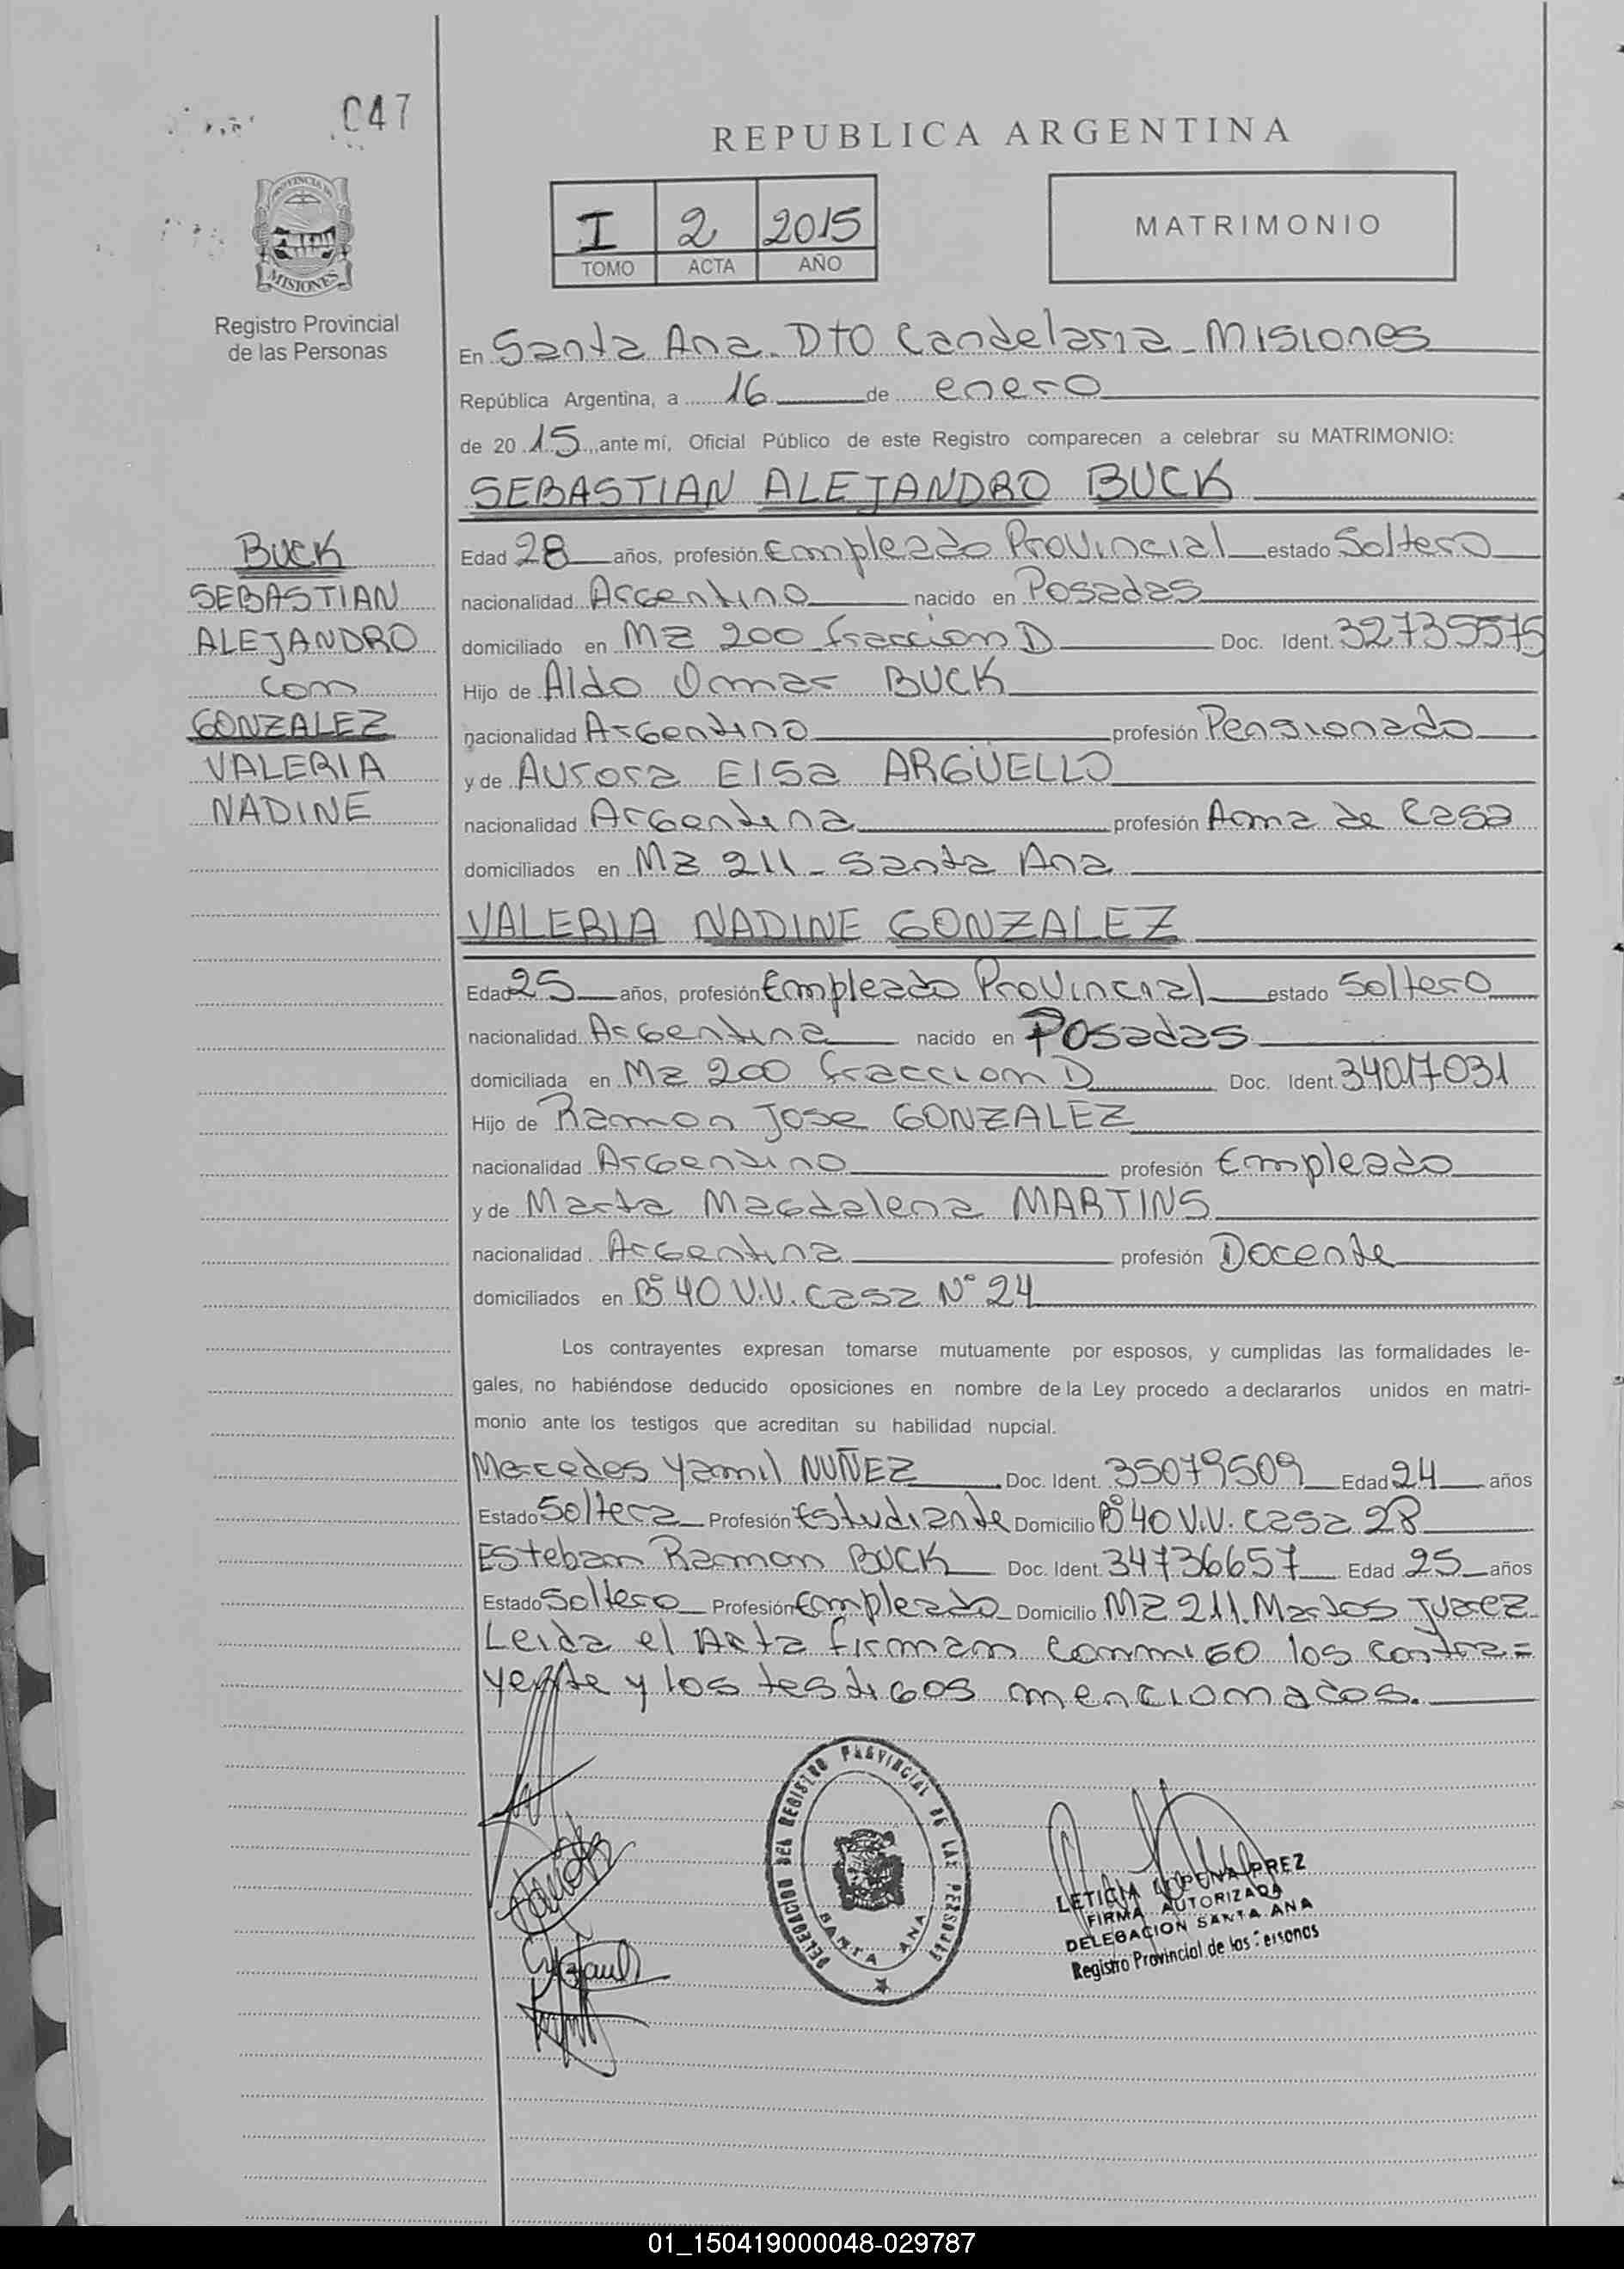 047
REPUBLICA ARGENTINA
I 2 2015
TOMO ACTA AÑO
MATRIMONIO
PROVINCIA DE
MISIONES
Registro Provincial
de las Personas
En Santa Ana - Dto Candelaria - Misiones
República Argentina, a 16 de enero
de 2015 ante mí, Oficial Público de este Registro comparecen a celebrar su MATRIMONIO:
SEBASTIAN ALEJANDRO BUCK
BUCK
SEBASTIAN
ALEJANDRO
con
GONZALEZ
VALERIA
NADINE
Edad 28 años, profesión Empleado Provincial estado Soltero
nacionalidad Argentino nacido en Posadas
domiciliado en Mz 200 fraccion D Doc. Ident. 32735575
Hijo de Aldo Omar BUCK
nacionalidad Argentino profesión Pensionado
y de Aurora Elsa ARGÜELLO
nacionalidad Argentina profesión Ama de Casa
domiciliados en Mz 211 - Santa Ana
VALERIA NADINE GONZALEZ
Edad 25 años, profesión Empleado Provincial estado Soltero
nacionalidad Argentina nacido en Posadas
domiciliada en Mz 200 fraccion D Doc. Ident. 34017031
Hijo de Ramon Jose GONZALEZ
nacionalidad Argentino profesión Empleado
y de Marta Magdalena MARTINS
nacionalidad Argentina profesión Docente
domiciliados en B° 40 V.V. Casa N° 24
Los contrayentes expresan tomarse mutuamente por esposos, y cumplidas las formalidades le-
gales, no habiéndose deducido oposiciones en nombre de la Ley procedo a declararlos unidos en matri-
monio ante los testigos que acreditan su habilidad nupcial.
Mercedes Yamil NUÑEZ Doc. Ident. 35079509 Edad 24 años
Estado Soltera Profesión Estudiante Domicilio B° 40 V.V. Casa 28
Esteban Ramon BUCK Doc. Ident. 34736657 Edad 25 años
Estado Soltero Profesión Empleado Domicilio Mz 211. Marcos Juarez
Leida el Acta firman conmigo los contra=
yente y los testigos mencionados.
DELEGACION DEL REGISTRO PROVINCIAL DE LAS PERSONAS
SANTA ANA
LETICIA PREZ
FIRMA AUTORIZADA
DELEGACION SANTA ANA
Registro Provincial de las Personas
01_150419000048-029787